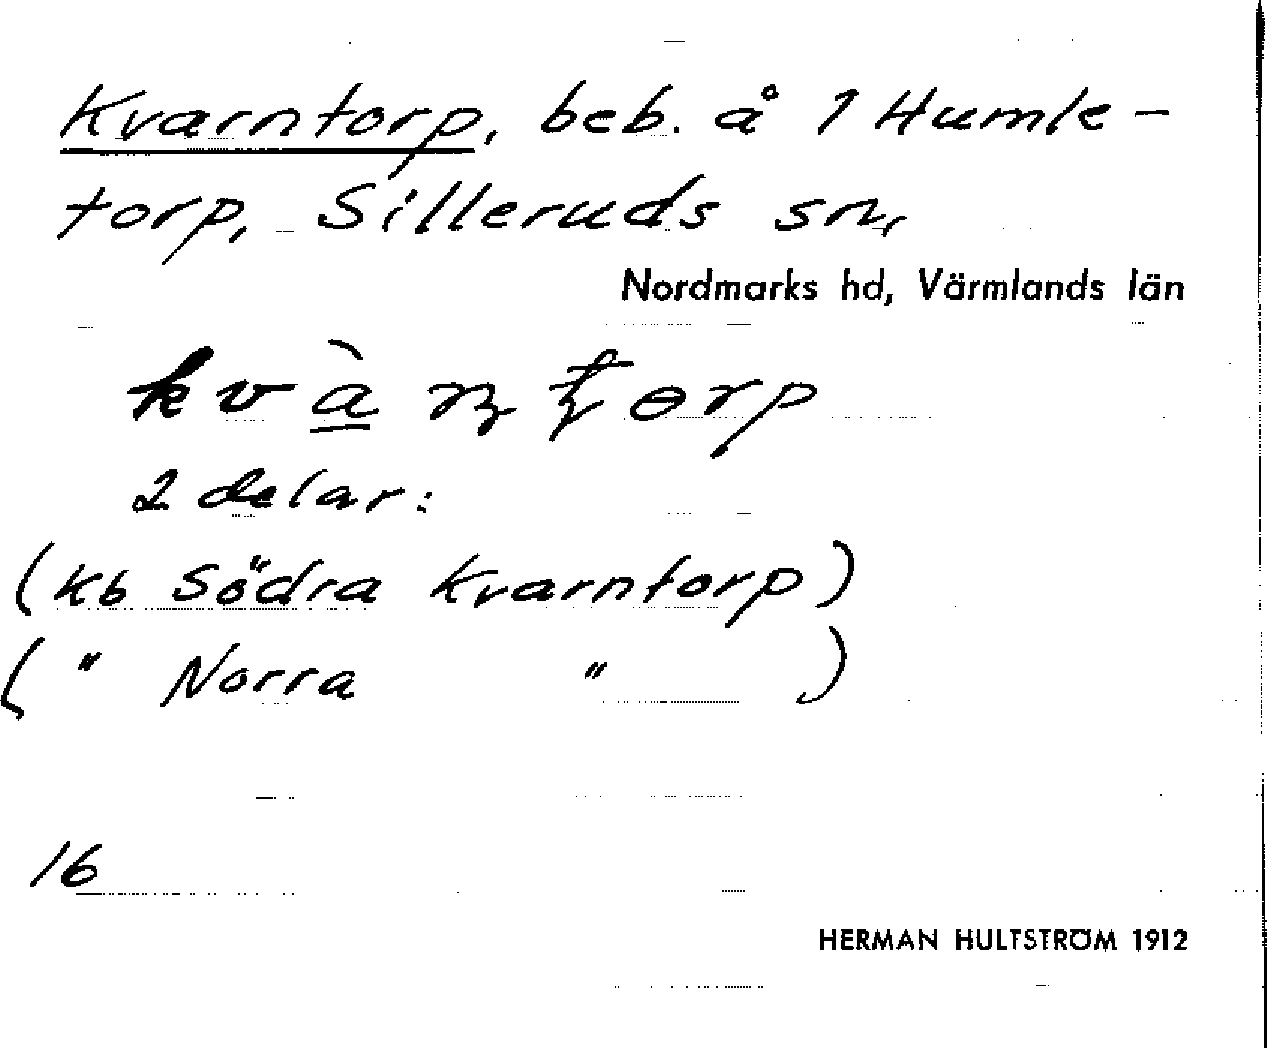 Kvarntorp, beb. å 1 Humle-
torp, Silleruds sn,
Nordmarks hd, Värmlands län
2 delar:
(kb Södra Kvarntorp)
( " Norra " )
16
HERMAN HULTSTRÖM 1912